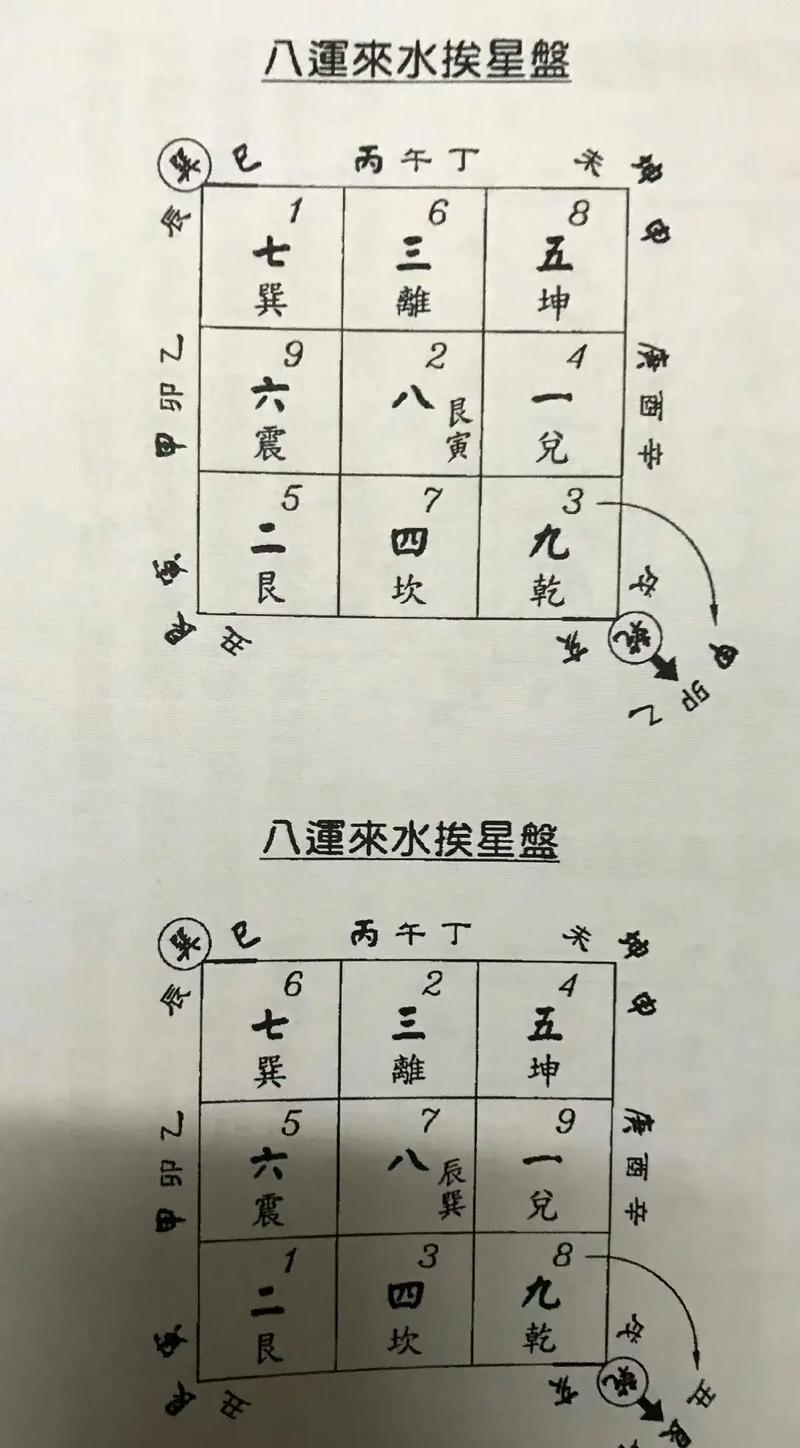 八運來水挨星盤
巽 巳 丙 午 丁 未 坤
辰 1 6 8 申
七 三 五
巽 離 坤
乙 9 2 4 庚
卯 六 八 艮 一 酉
甲 震 寅 兌 辛
5 7 3
寅 二 四 九 戌
艮 坎 乾
艮 丑 亥 乾 甲
卯
乙
八運來水挨星盤
巽 巳 丙 午 丁 未 坤
辰 6 2 4 申
七 三 五
巽 離 坤
乙 5 7 9 庚
卯 六 八 辰 一 酉
甲 震 巽 兌 辛
1 3 8
二 四 九
寅 艮 坎 乾 戌
艮 丑 亥 乾 丑
艮